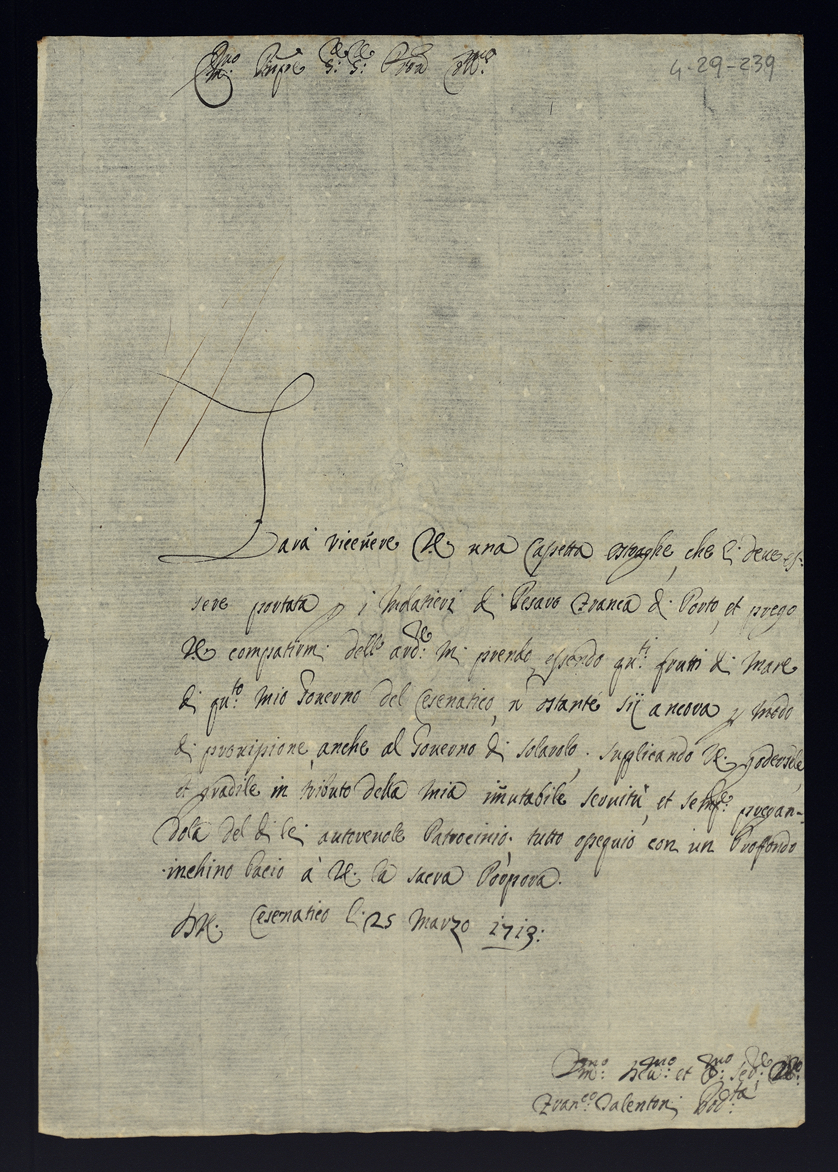 4-29-239
Em.mo Prnpe
Sarà ricevere V.E. una Cassetta ostraghe, che li deve es-
sere portata p i Indatieri di Pesaro Franca di Porto, et prego
V.E. compatirmi dell' ard.e mi prendo, essendo qu.ti frutti di Mare
di qu.to mio Governo del Cesenatico, n ostante sij ancora p modo
di provisione anche al Governo di Solarolo. Supplicando V.E. godersele,
et gradile in tributo della mia immutabile servitù, et sempre pregan-
dola del di lei autorevole Patrocinio. tutto ossequio con un Proffondo
inchino bacio à V.E. la sacra Porpora.
D V.E. Cesenatico li 25 Marzo 1713:
Um.mo Dev.mo et Se.re
Fran.co Valentoni Pod.tà